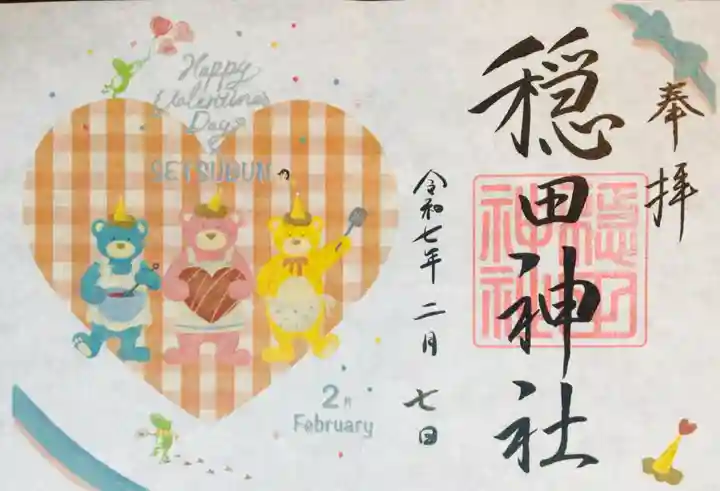 奉拝
穏田神社
穏田
神社
令和七年二月七日
Happy
Valentine's
Day
&
SETSUBUNの
2月
February